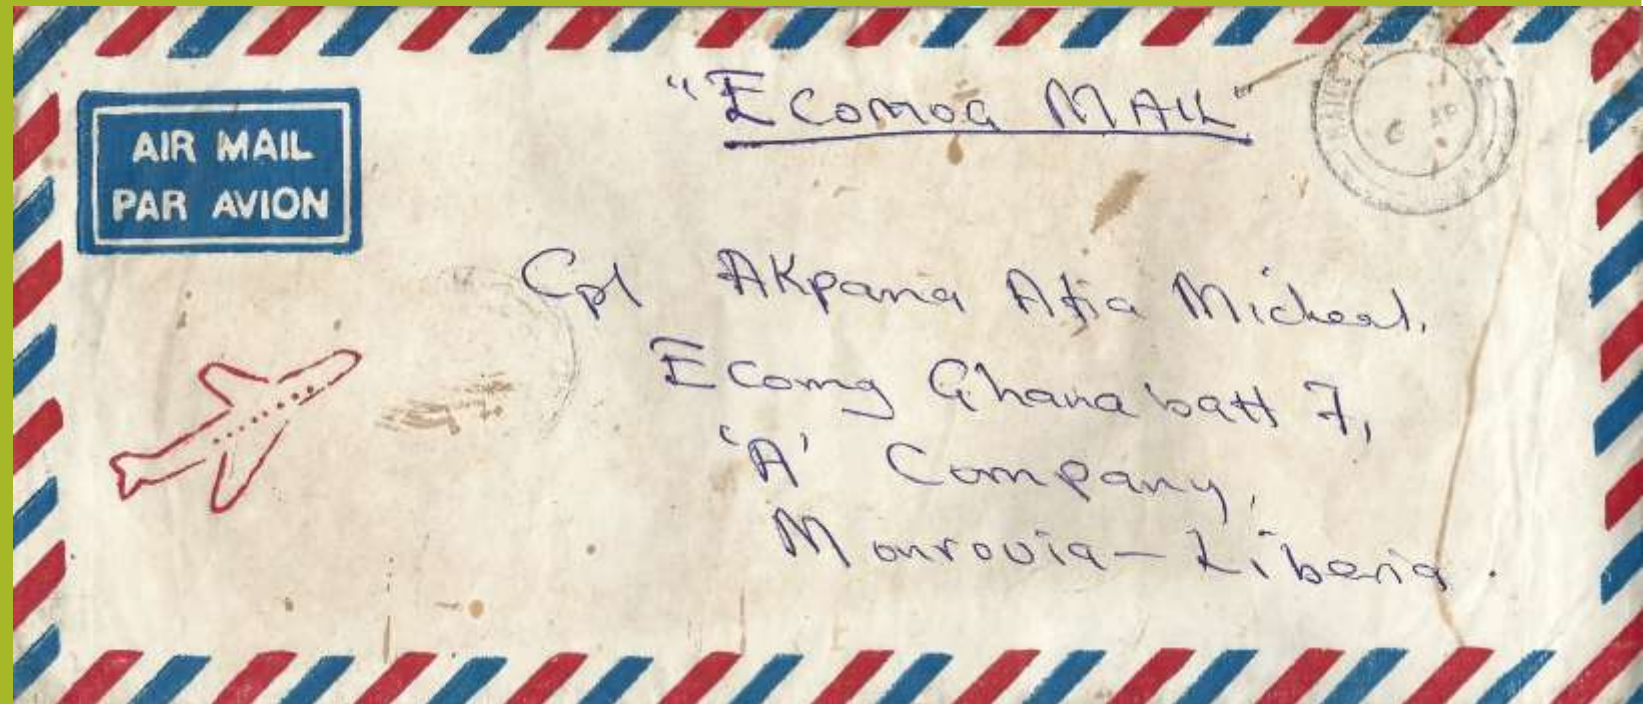 AIR MAIL
PAR AVION
"Ecomog MAIL"
Cpl Akpana Afia Micheal.
Ecomg Ghanabatt 7,
'A' Company,
Monrovia - Liberia.